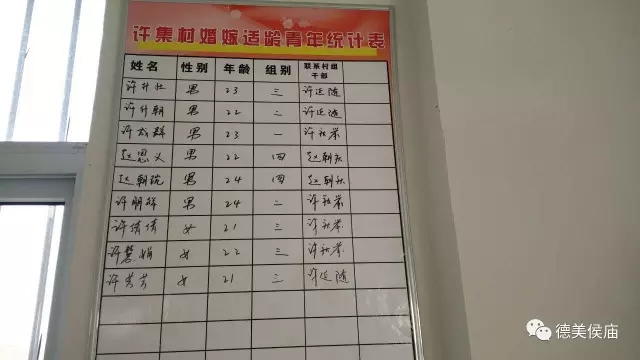 许集村婚嫁适龄青年统计表
姓名 性别 年龄 组别 联系村组干部
许升壮 男 23 三 许廷随
许升朝 男 22 二 许廷随
许 群 男 23 一 许秋荣
赵恩义 男 22 四 赵朝
赵朝 男 24 四 赵朝
许朋 男 24 二 许秋荣
许倩倩 女 21 三 许秋荣
许慧娟 女 22 三 许秋荣
许芳芳 女 21 三 许廷随
德美侯庙